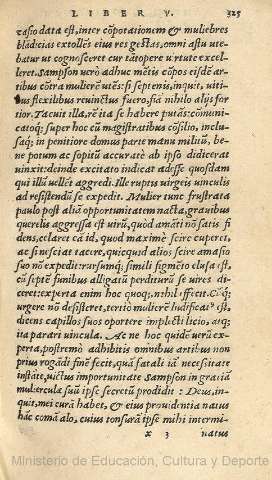 LIBER V. 325
casio data est, inter cōpotationem & muliebres
blāditias extollēs eius res gestas, omni astu ute-
batur ut cognosceret cur tātopere uirtute excel-
leret. Sampson uerò adhuc mētis cōpos eisdē ar-
tibus cōtra mulierē utēs: si septenis, inquit, uiti-
bus flexibilus reuinctus fuero, siā nihilo alijs for
tior. Tacuit illa, rē ita se habere putās: communi-
catoq; super hoc cū magistratibus cōsilio, inclu-
saq; in penitiore domus parte manu militū, be-
ne potum ac sopitū accuratè ab ipso didicerat
uinxit: deinde excitato indicat adesse quosdam
qui illū uellēt aggredi. Ille ruptis uirgeis uinculis
ad resistendū se expedit. Mulier tunc frustrata
paulo post aliā opportunitatem nacta, grauibus
querelis aggressa est uirū, quòd amāti nō satis fi
dens, celaret cā id, quod maximè scire cuperet,
ac si nesciat tacere, quicquid alios scire amasio
suo nō expedit: rursumq; simili figmēto elusa est,
cū septē funibus alligatū perditurū se uires di-
ceret: experta enim hoc quoq;, nihil effecit. Cūq;
urgere nō desisteret, tertiò mulierē ludificat' est,
dicens capillos suos oportere implecti licio, atq;
ita parari uincula. Ac ne hoc quidē uerū ex-
perta, postremò adhibitis omnibus artibus non
prius rogādi finē fecit, quā fatali iā necessitate
instāte, uictus importunitate Sampson in gratiā
mulierculæ suū ipse secretū prodidit: Deus, in-
quit, mei curā habet, & eius prouidentia natus
hāc comā alo, cuius tonsurā ipse mihi intermi-
x 3 natus
Ministerio de Educación, Cultura y Deporte